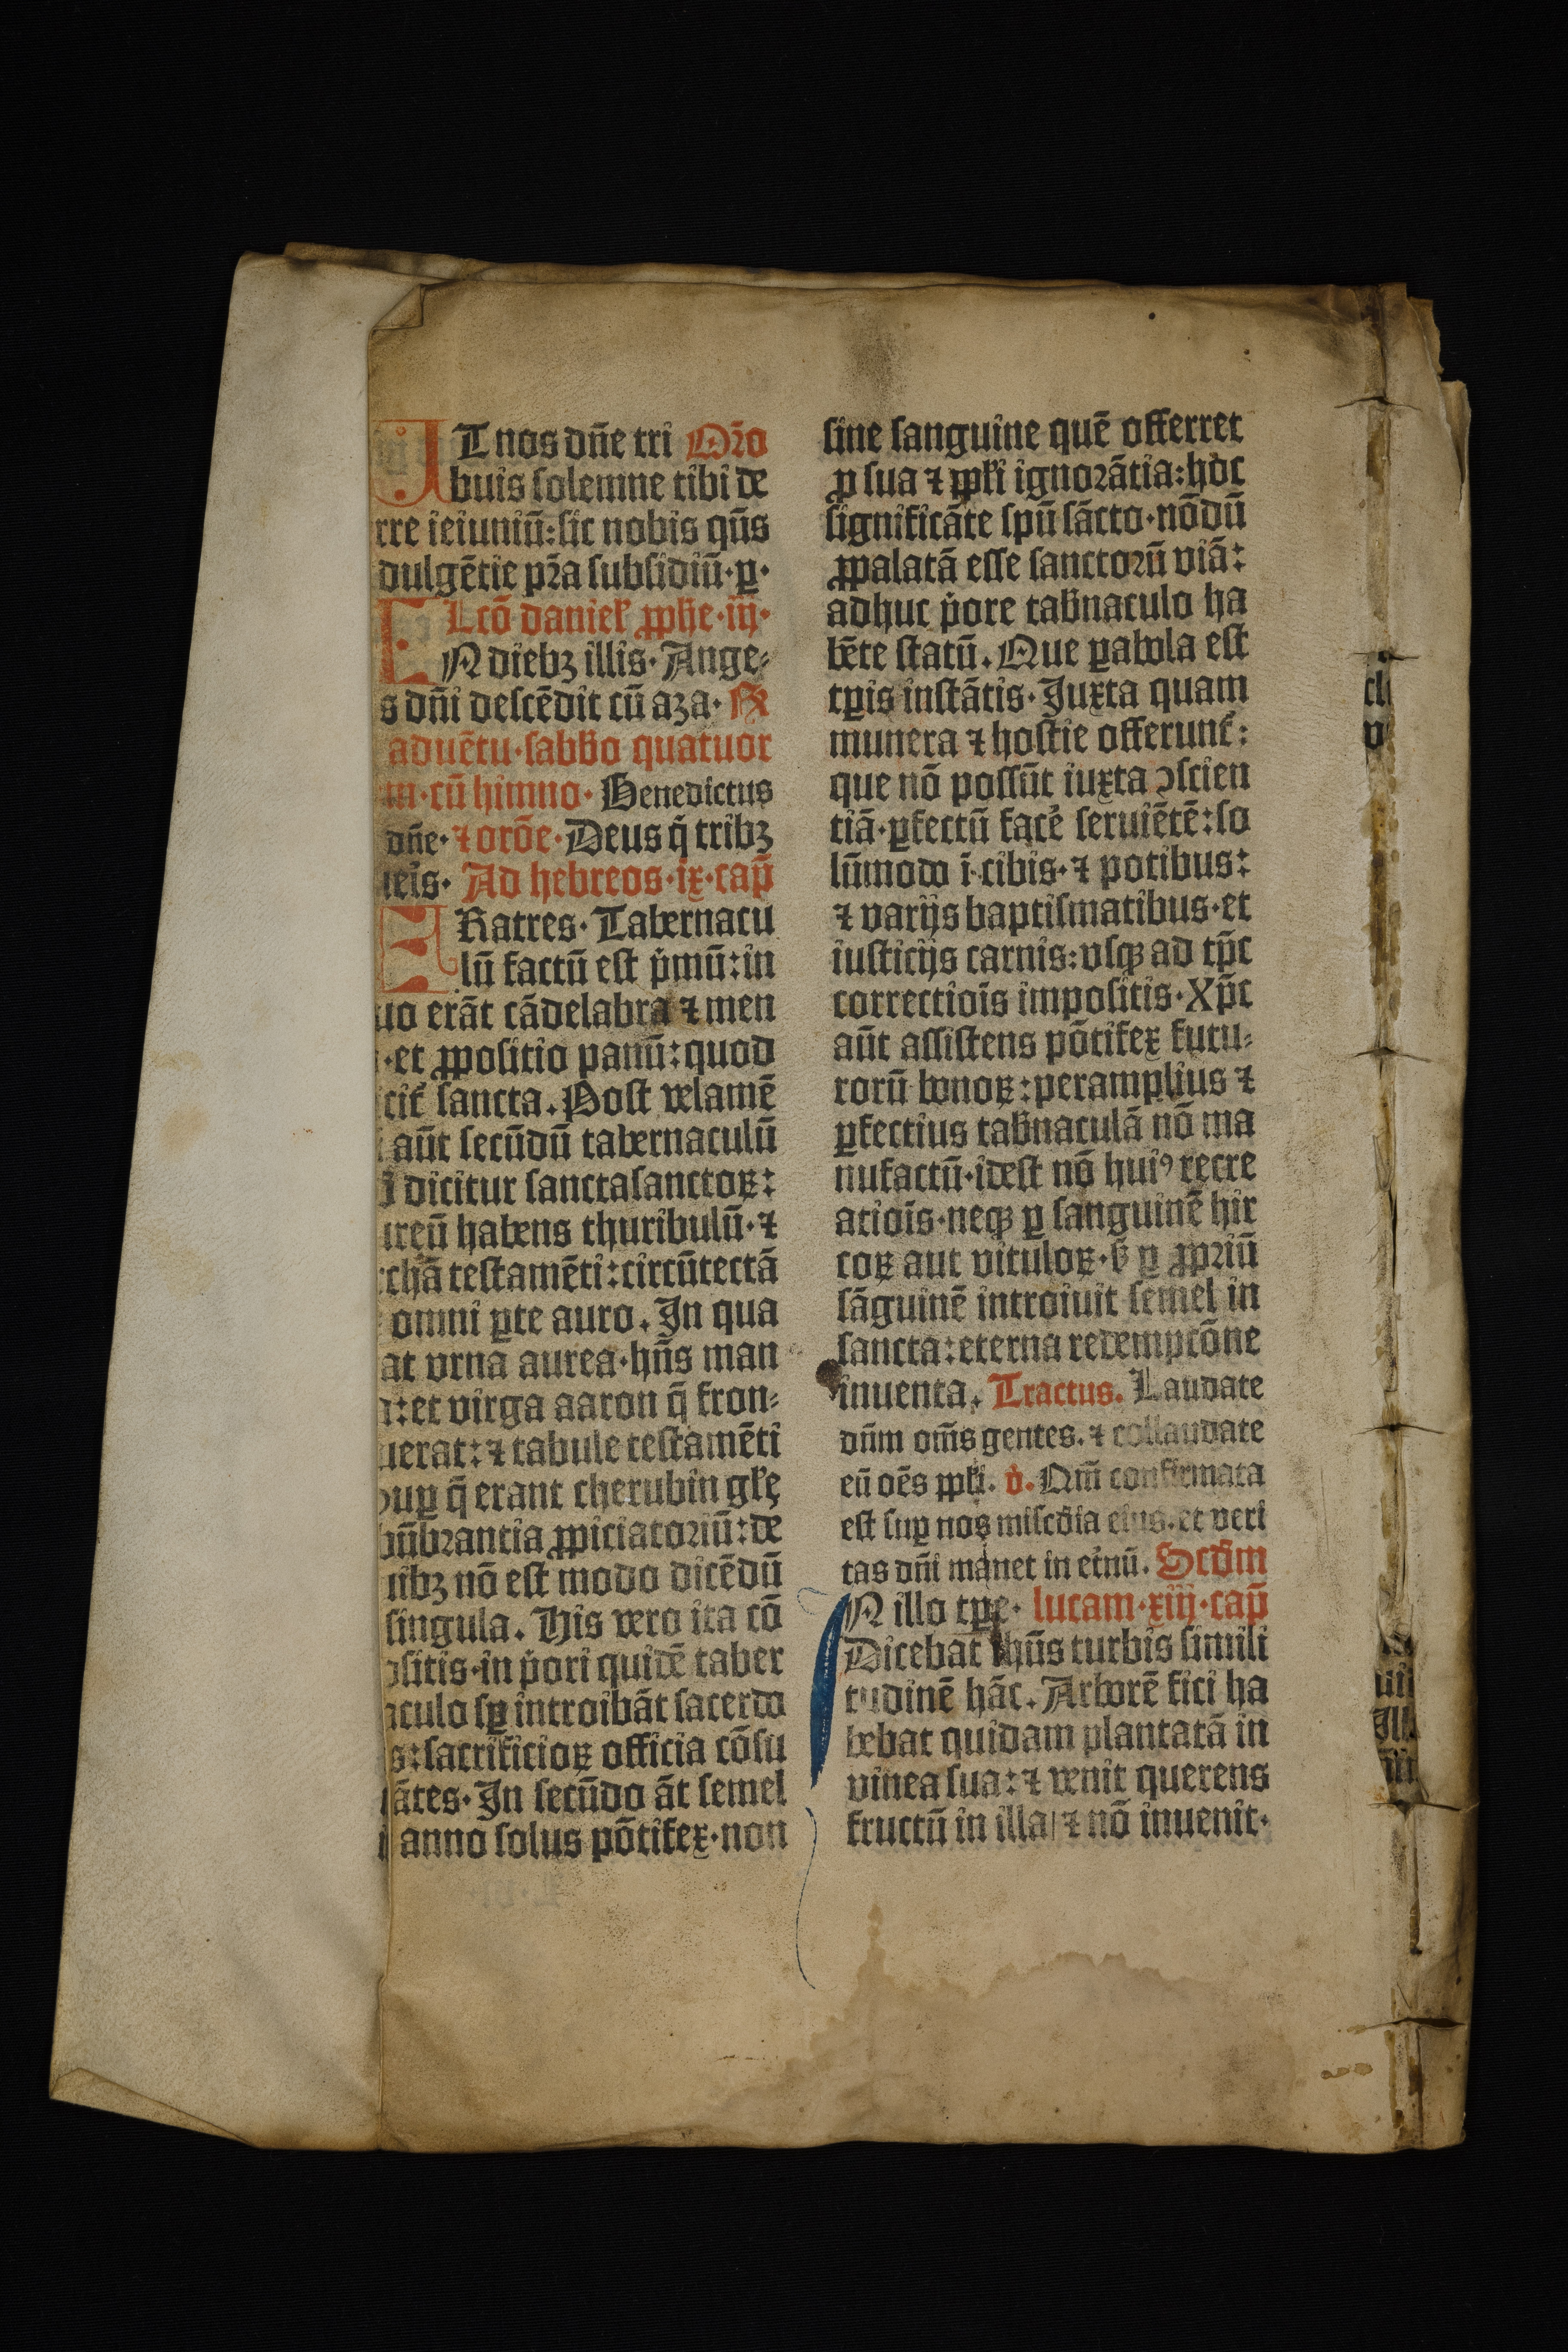 UT nos dñe tri Oꝛ̃o
buis solemne tibi de
rre ieiuniũ: sic nobis qũs
dulgẽtie pr̃a subsidiũ· ꝑ·
Lcõ danieł ꝓphe· iij·
IN diebꝫ illis· Ange⸗
s dñi descẽdit cũ aza· R̃
aduẽtu· sabb̃o quatuor
m· cũ himno· Benedictus
dñe· ⁊ orõe· Deus q̃ tribꝫ
ieĩs· Ad hebreos· ix· cap̃
FRatres· Tabernacu
lũ factũ est p̃mũ: in
uo erãt cãdelabra ⁊ men
·et ꝓpositio panũ: quod
cit̃ sancta. Post velamẽ
aũt secũdũ tabernaculũ
dicitur sanctasanctoꝝ:
ureũ habens thuribulũ· ⁊
rchã testamẽti: circũtectã
omni ꝑte auro. In qua
at vrna aurea· hñs man
a: et virga aaron q̃ fron⸗
uerat: ⁊ tabule testamẽti
suꝑ q̃ erant cherubin głę
bũbrantia ꝓpiciatoriũ: de
uibꝫ nõ est modo dicẽdũ
singula. His vero ita cõ
ositis· in p̃ori quidẽ taber
aculo sꝑ introibãt sacerdo
s: sacrificioꝝ officia cõsu
ãtes· In secũdo ãt semel
anno solus põtifex· non
sine sanguine quẽ offerret
ꝓ sua ⁊ ꝓpłi ignorãtia: hoc
significãte spũ sãcto· nõdũ
ꝓpalatã esse sanctorũ viã:
adhuc p̃ore tab̃naculo ha
bẽte statũ. Que ꝑabola est
tꝑis instãtis· Juxta quam
munera ⁊ hostie offerunt̃:
que nõ possũt iuxta ↄscien
tiã· ꝑfectũ facẽ seruiẽtẽ: so
lũmodo ĩ· cibis· ⁊ potibus:
⁊ varijs baptismatibus· et
iusticijs carnis: vsqꝫ ad tp̃c
correctiõis impositis· Xp̃c
aũt assistens põtifex futu⸗
rorũ bonoꝝ: peramplius ⁊
ꝑfectius tab̃naculã nõ ma
nufactũ· idest nõ huiꝰ recre
atiõis· neqꝫ ꝑ sanguinẽ hir
coꝝ aut vituloꝝ· ꝟ ꝑ ꝓpriũ
sãguinẽ introiuit semel in
sancta: eterna redemptõne
inuenta. Tractus. Laudate
dñm om̃s gentes. ⁊ collaudate
eũ oẽs ppłi. v̇. Qm̃ confirmata
est suꝑ nos misc̃dia eius. et veri
tas dñi manet in et̃nũ. Scd̃m
IN illo tꝑe· lucam· xiij· cap̃
Dicebat ihũs turbis simili
tudinẽ hãc. Arborẽ fici ha
bebat quidam plantatã in
vinea sua: ⁊ venit querens
fructũ in illa/ ⁊ nõ inuenit·